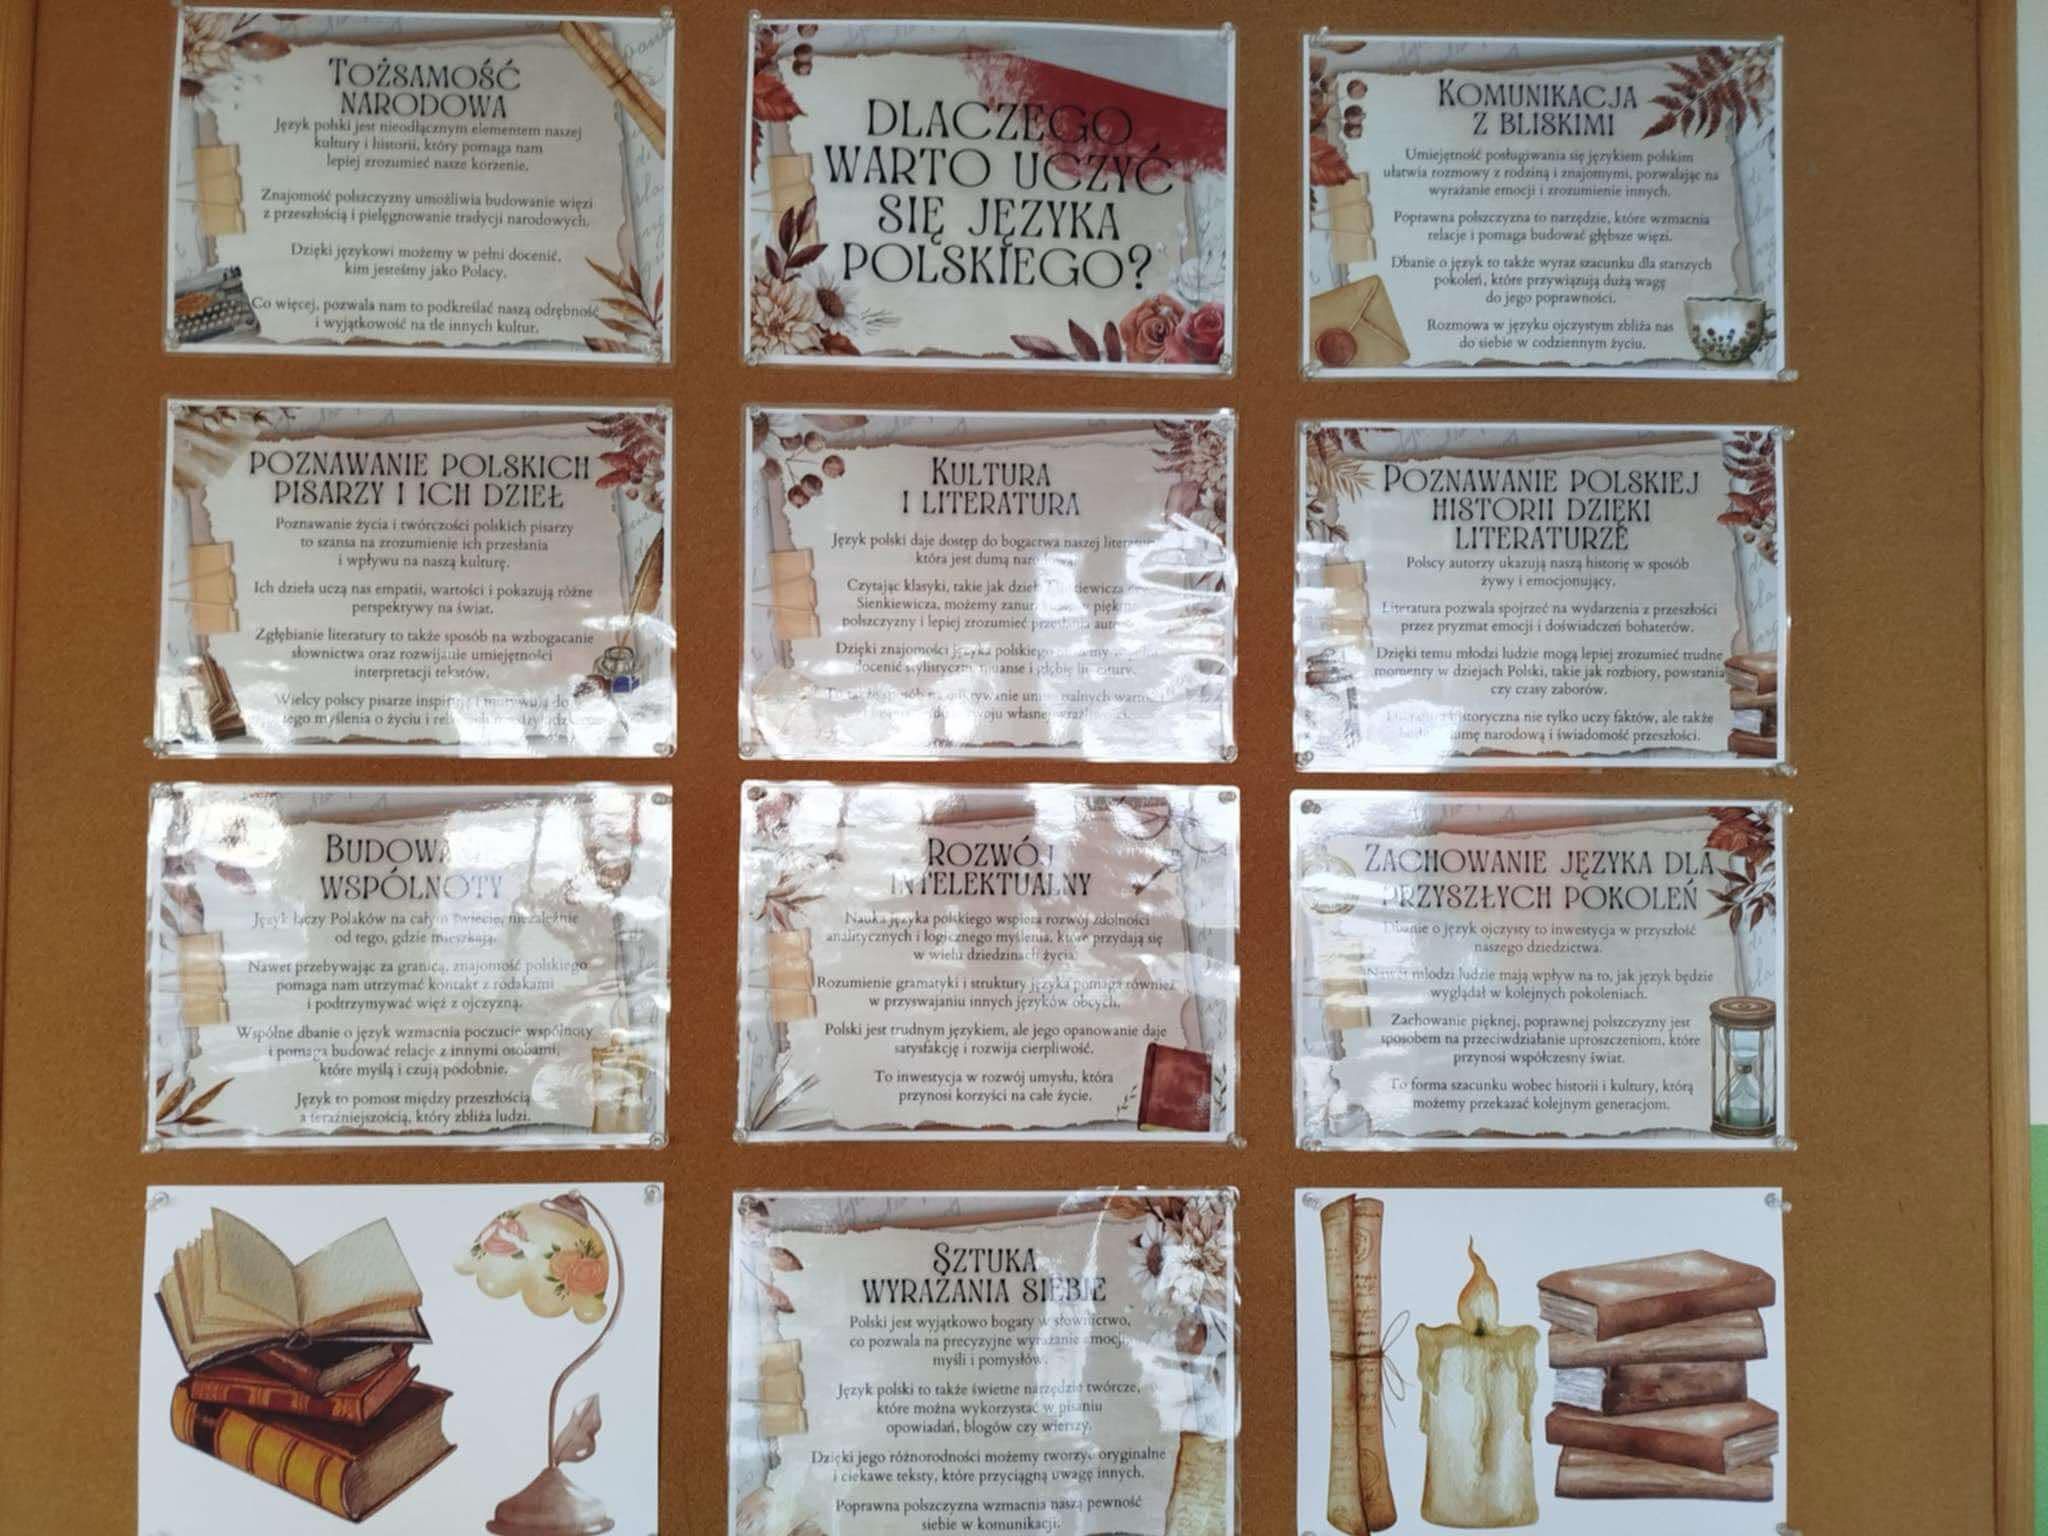 TOŻSAMOŚĆ
NARODOWA
Język polski jest nieodłącznym elementem naszej
kultury i historii, który pomaga nam
lepiej zrozumieć nasze korzenie.
Znajomość polszczyzny umożliwia budowanie więzi
z przeszłością i pielęgnowanie tradycji narodowych.
Dzięki językowi możemy w pełni docenić,
kim jesteśmy jako Polacy.
Co więcej, pozwala nam to podkreślać naszą odrębność
i wyjątkowość na tle innych kultur.
DLACZEGO
WARTO UCZYĆ
SIĘ JĘZYKA
POLSKIEGO?
KOMUNIKACJA
Z BLISKIMI
Umiejętność posługiwania się językiem polskim
ułatwia rozmowy z rodziną i znajomymi, pozwalając na
wyrażanie emocji i zrozumienie innych.
Poprawna polszczyzna to narzędzie, które wzmacnia
relacje i pomaga budować głębsze więzi.
Dbanie o język to także wyraz szacunku dla starszych
pokoleń, które przywiązują dużą wagę
do jego poprawności.
Rozmowa w języku ojczystym zbliża nas
do siebie w codziennym życiu.
POZNAWANIE POLSKICH
PISARZY I ICH DZIEŁ
Poznawanie życia i twórczości polskich pisarzy
to szansa na zrozumienie ich przesłania
i wpływu na naszą kulturę.
Ich dzieła uczą nas empatii, wartości i pokazują różne
perspektywy na świat.
Zgłębianie literatury to także sposób na wzbogacanie
słownictwa oraz rozwijanie umiejętności
interpretacji tekstów.
Wielcy polscy pisarze inspirują i motywują do
myślenia o życiu i
KULTURA
I LITERATURA
Język polski daje dostęp do bogactwa naszej
która jest dumą
Czytając klasyki, takie jak dzieła
Sienkiewicza, możemy
polszczyzny i lepiej zrozumieć przesłania
Dzięki znajomości języka polskiego
docenić stylistyczne niuanse i głębię
POZNAWANIE POLSKIEJ
HISTORII DZIĘKI
LITERATURZE
Polscy autorzy ukazują naszą historię w sposób
żywy i emocjonujący.
Literatura pozwala spojrzeć na wydarzenia z przeszłości
przez pryzmat emocji i doświadczeń bohaterów.
Dzięki temu młodzi ludzie mogą lepiej zrozumieć trudne
momenty w dziejach Polski, takie jak rozbiory, powstania
czy czasy zaborów.
historyczna nie tylko uczy faktów, ale także
dumę narodową i świadomość przeszłości.
BUDOWANIE
WSPÓLNOTY
Język łączy Polaków na całym świecie, niezależnie
od tego, gdzie mieszkają.
Nawet przebywając za granicą, znajomość polskiego
pomaga nam utrzymać kontakt z rodakami
i podtrzymywać więź z ojczyzną.
Wspólne dbanie o język wzmacnia poczucie wspólnoty
i pomaga budować relacje z innymi osobami,
które myślą i czują podobnie.
Język to pomost między przeszłością
a teraźniejszością, który zbliża ludzi.
ROZWÓJ
INTELEKTUALNY
Nauka języka polskiego wspiera rozwój zdolności
analitycznych i logicznego myślenia, które przydają się
w wielu dziedzinach życia.
Rozumienie gramatyki i struktury języka pomaga również
w przyswajaniu innych języków obcych.
Polski jest trudnym językiem, ale jego opanowanie daje
satysfakcję i rozwija cierpliwość.
To inwestycja w rozwój umysłu, która
przynosi korzyści na całe życie.
ZACHOWANIE JĘZYKA DLA
PRZYSZŁYCH POKOLEŃ
Dbanie o język ojczysty to inwestycja w przyszłość
naszego dziedzictwa.
Nawet młodzi ludzie mają wpływ na to, jak język będzie
wyglądał w kolejnych pokoleniach.
Zachowanie pięknej, poprawnej polszczyzny jest
sposobem na przeciwdziałanie uproszczeniom, które
przynosi współczesny świat.
To forma szacunku wobec historii i kultury, którą
możemy przekazać kolejnym generacjom.
SZTUKA
WYRAŻANIA SIEBIE
Polski jest wyjątkowo bogaty w słownictwo,
co pozwala na precyzyjne wyrażanie emocji,
myśli i pomysłów.
Język polski to także świetne narzędzie twórcze,
które można wykorzystać w pisaniu
opowiadań, blogów czy wierszy.
Dzięki jego różnorodności możemy tworzyć oryginalne
i ciekawe teksty, które przyciągną uwagę innych.
Poprawna polszczyzna wzmacnia naszą pewność
siebie w komunikacji.